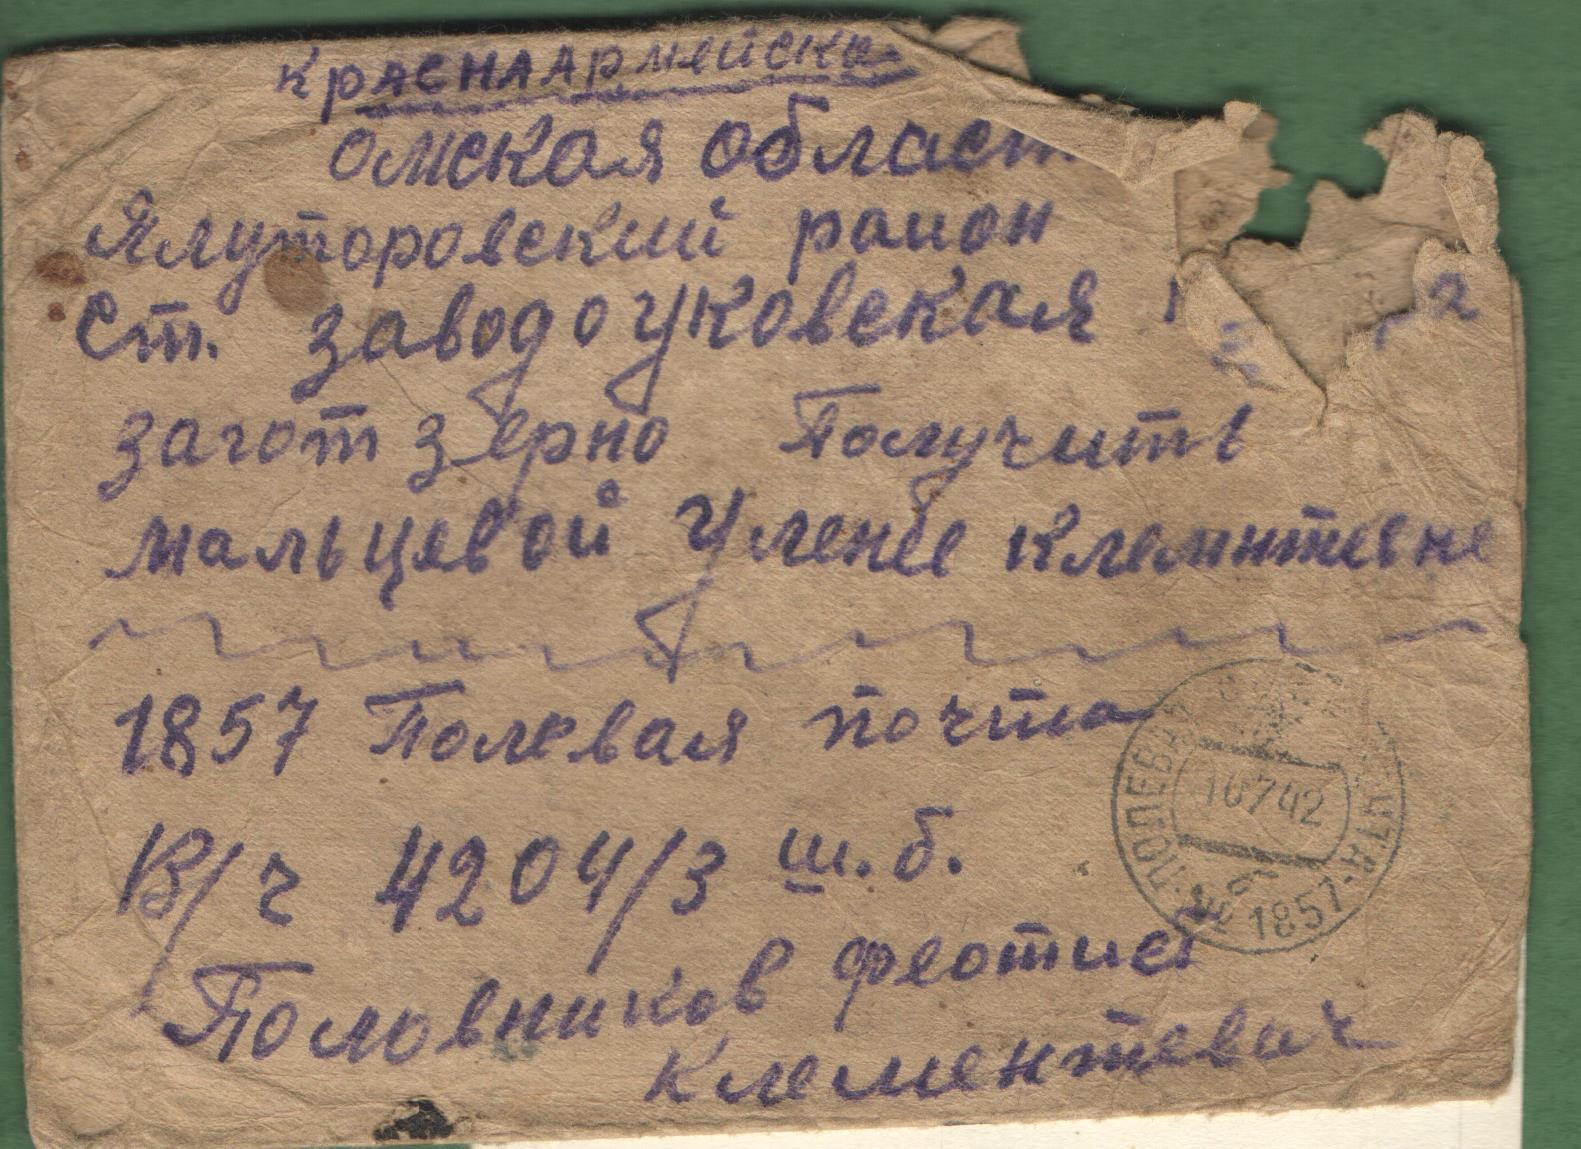 КрАСНААрмейска
Омская област
Ялуторовский район
Ст. Заводоуковская
Загот зерно Получить
Мальцевой Улене Клемнтевне
1857 Полевая почта
В/ч 4204/3 ш.б.
Половников Феотист
Клементевич
ПОЛЕВАЯ ПОЧТА
10742
1857